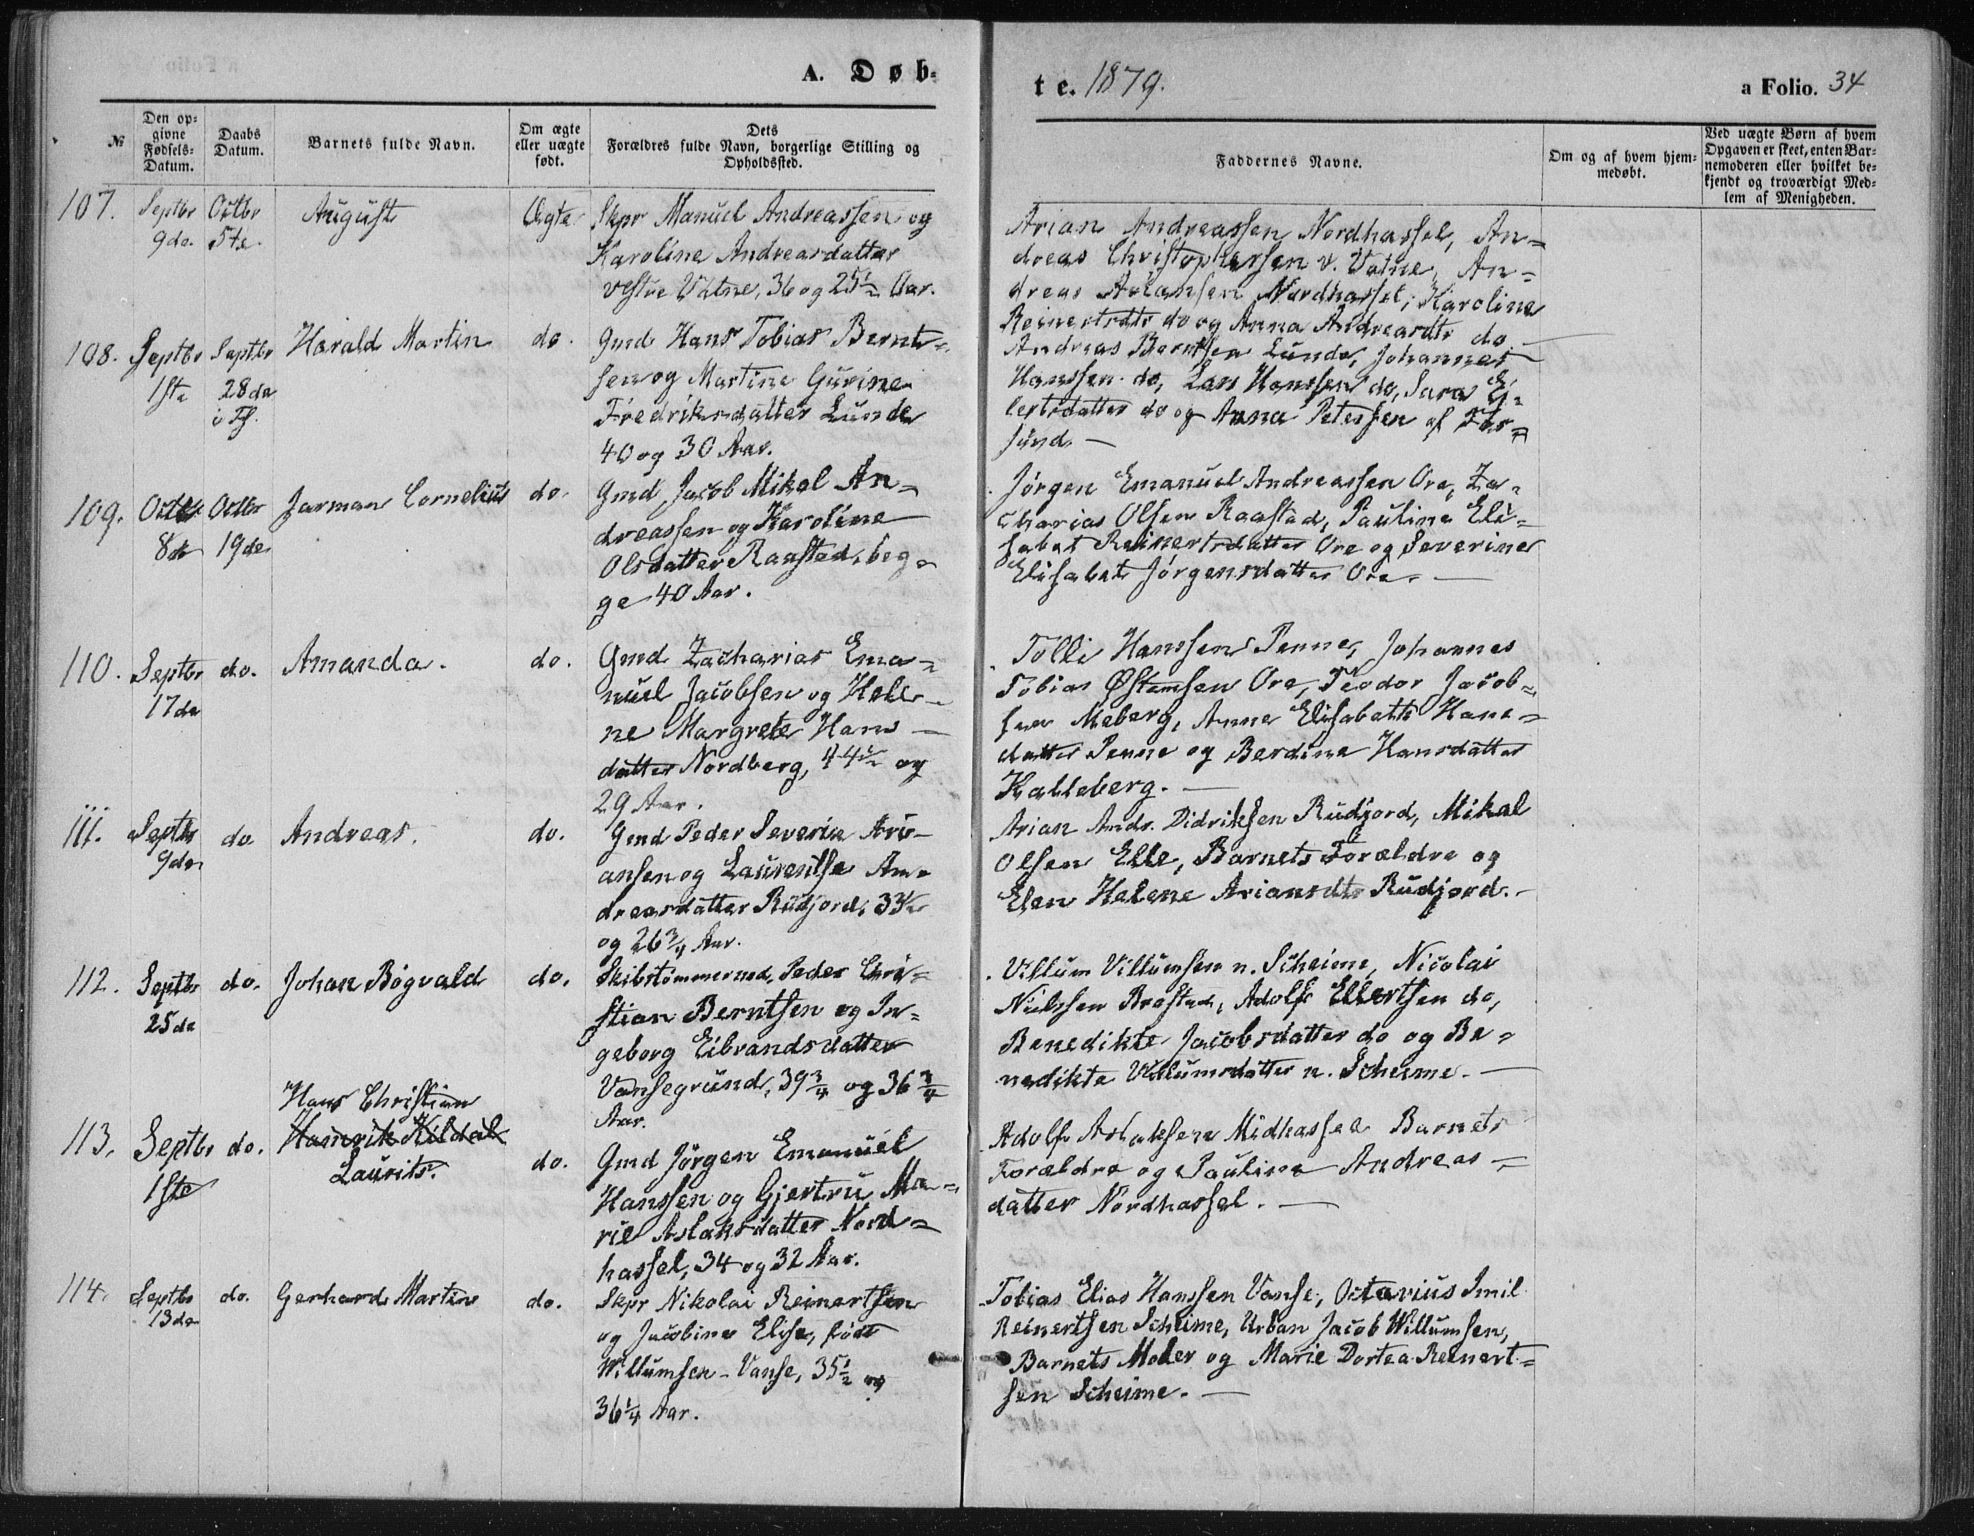 A. Døb-
te. 1879.
a Folio. 34
№
Den op-
givne
Fødsels-
Datum.
Daabs
Datum.
Barnets fulde Navn.
Om ægte
eller uægte
født.
Dets
Forældres fulde Navn, borgerlige Stilling og
Opholdssted.
Faddernes Navne.
Om og af hvem hjem-
medøbt.
Ved uægte Børn af hvem
Opgaven er skeet, enten Bar-
nemoderen eller hvilket be-
kjendt og troværdigt Med-
lem af Menigheden.
107.
Septbr
9de
Octbr
5te
August
Ægte
Skpr Manuel Andreassen og
Karoline Andreasdatter
vestre Vatne, 36 og 25½ Aar.
Arian Andreassen Nordhassel, An-
dreas Christophersen v. Vatne, An-
dreas Ariansen Nordhassel, Karoline
Reinertsdtr do og Anna Andreasdtr do.
108.
Septbr
1ste
Septbr
28de
Harald Martin
do.
Gmd Hans Tobias Bernt-
sen og Martine Gurine
Fredriksdatter Lunde
40 og 30 Aar.
Andreas Berntsen Lunde, Johannes
Hanssen do, Lars Hanssen do, Sara El-
lertsdatter do og Anna Petersen af Far-
sund. —
109.
Octbr
8de
Octbr
19de
Jarman Cornelius
do.
Gmd Jacob Mikal An-
dreassen og Karoline
Olsdatter Raastad, beg-
ge 40 Aar.
Jørgen Emanuel Andreassen Ore, Za-
charias Olsen Raastad, Pauline Eli-
sabet Reinertsdatter Ore og Severine
Elisabet Jørgensdatter Ore. —
110.
Septbr
17de
do.
Amanda.
do.
Gmd Zacharias Ema-
nuel Jacobsen og Hele-
ne Margrete Hans-
datter Nordberg, 44½ og
29 Aar.
Tolli Hanssen Penne, Johannes
Tobias Østensen Ore, Teodor Jacob-
sen Meberg, Anne Elisabeth Hans-
datter Penne og Berdine Hansdatter
Kalleberg. —
111.
Septbr
9de
do
Andreas.
do.
Gmd Peder Severin Ari-
ansen og Laurentse An-
dreasdatter Rudjord, 33½
og 26¾ Aar.
Arian Andr. Didriksen Rudjord, Mikal
Olsen Elle, Barnets Forældre og
Elen Helene Ariansdtr Rudjord. —
112.
Septbr
25de
do.
Johan Bøgvald
do.
Skibstømmermd. Peder Chri-
stian Berntsen og In-
geborg Eibrandsdatter
Vansegrund, 39¾ og 36¾
Aar.
Villum Villumsen n. Scheime, Nicolai
Nielssen Brastad, Adolf Ellertsen do,
Benedikte Jacobsdatter do og Be-
nedikte Villumsdatter n. Scheime. —
113.
Septbr
1ste
do.
Hans Christian
Laurits.
do.
Gmd Jørgen Emanuel
Hanssen og Gjertru Ma-
rie Aslaksdatter Nord-
hassel, 34 og 32 Aar.
Adolf Aslaksen Midhassel Barnets
Forældre og Pauline Andreas-
datter Nordhassel. —
114.
Septbr
13de
do.
Gerhard Martin
do.
Skpr Nikolai Reinertsen
og Jacobine Elise, født
Willumsen - Vanse, 35½ og
36¼ Aar.
Tobias Elias Hanssen Vanse, Octavius Emil
Reinertsen Scheime, Urban Jacob Willumsen,
Barnets Moder og Marie Dortea Reinert-
sen Scheime. —